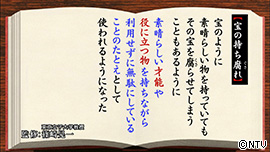 【宝の持ち腐れ】
宝のように
素晴らしい物を持っていても
その宝を腐らせてしまう
こともあるように
素晴らしい才能や
役に立つ物を持ちながら
利用せずに無駄にしている
ことのたとえとして
使われるようになった
©NTV